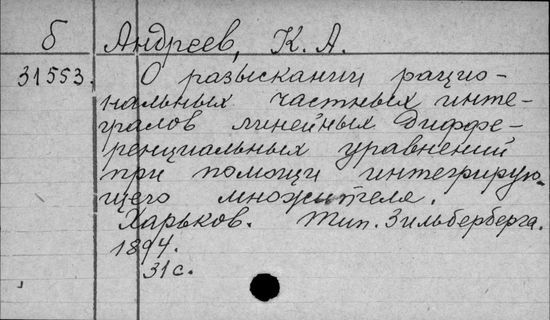 б Андреев, К. А.
31553. О разыскании рацио-
нальных частных инте-
гралов линейных диффе-
ренциальных уравнений
при помощи интегрирую-
щего множителя.
Харьков. Тип. Зильберберга.
1894.
31 с.